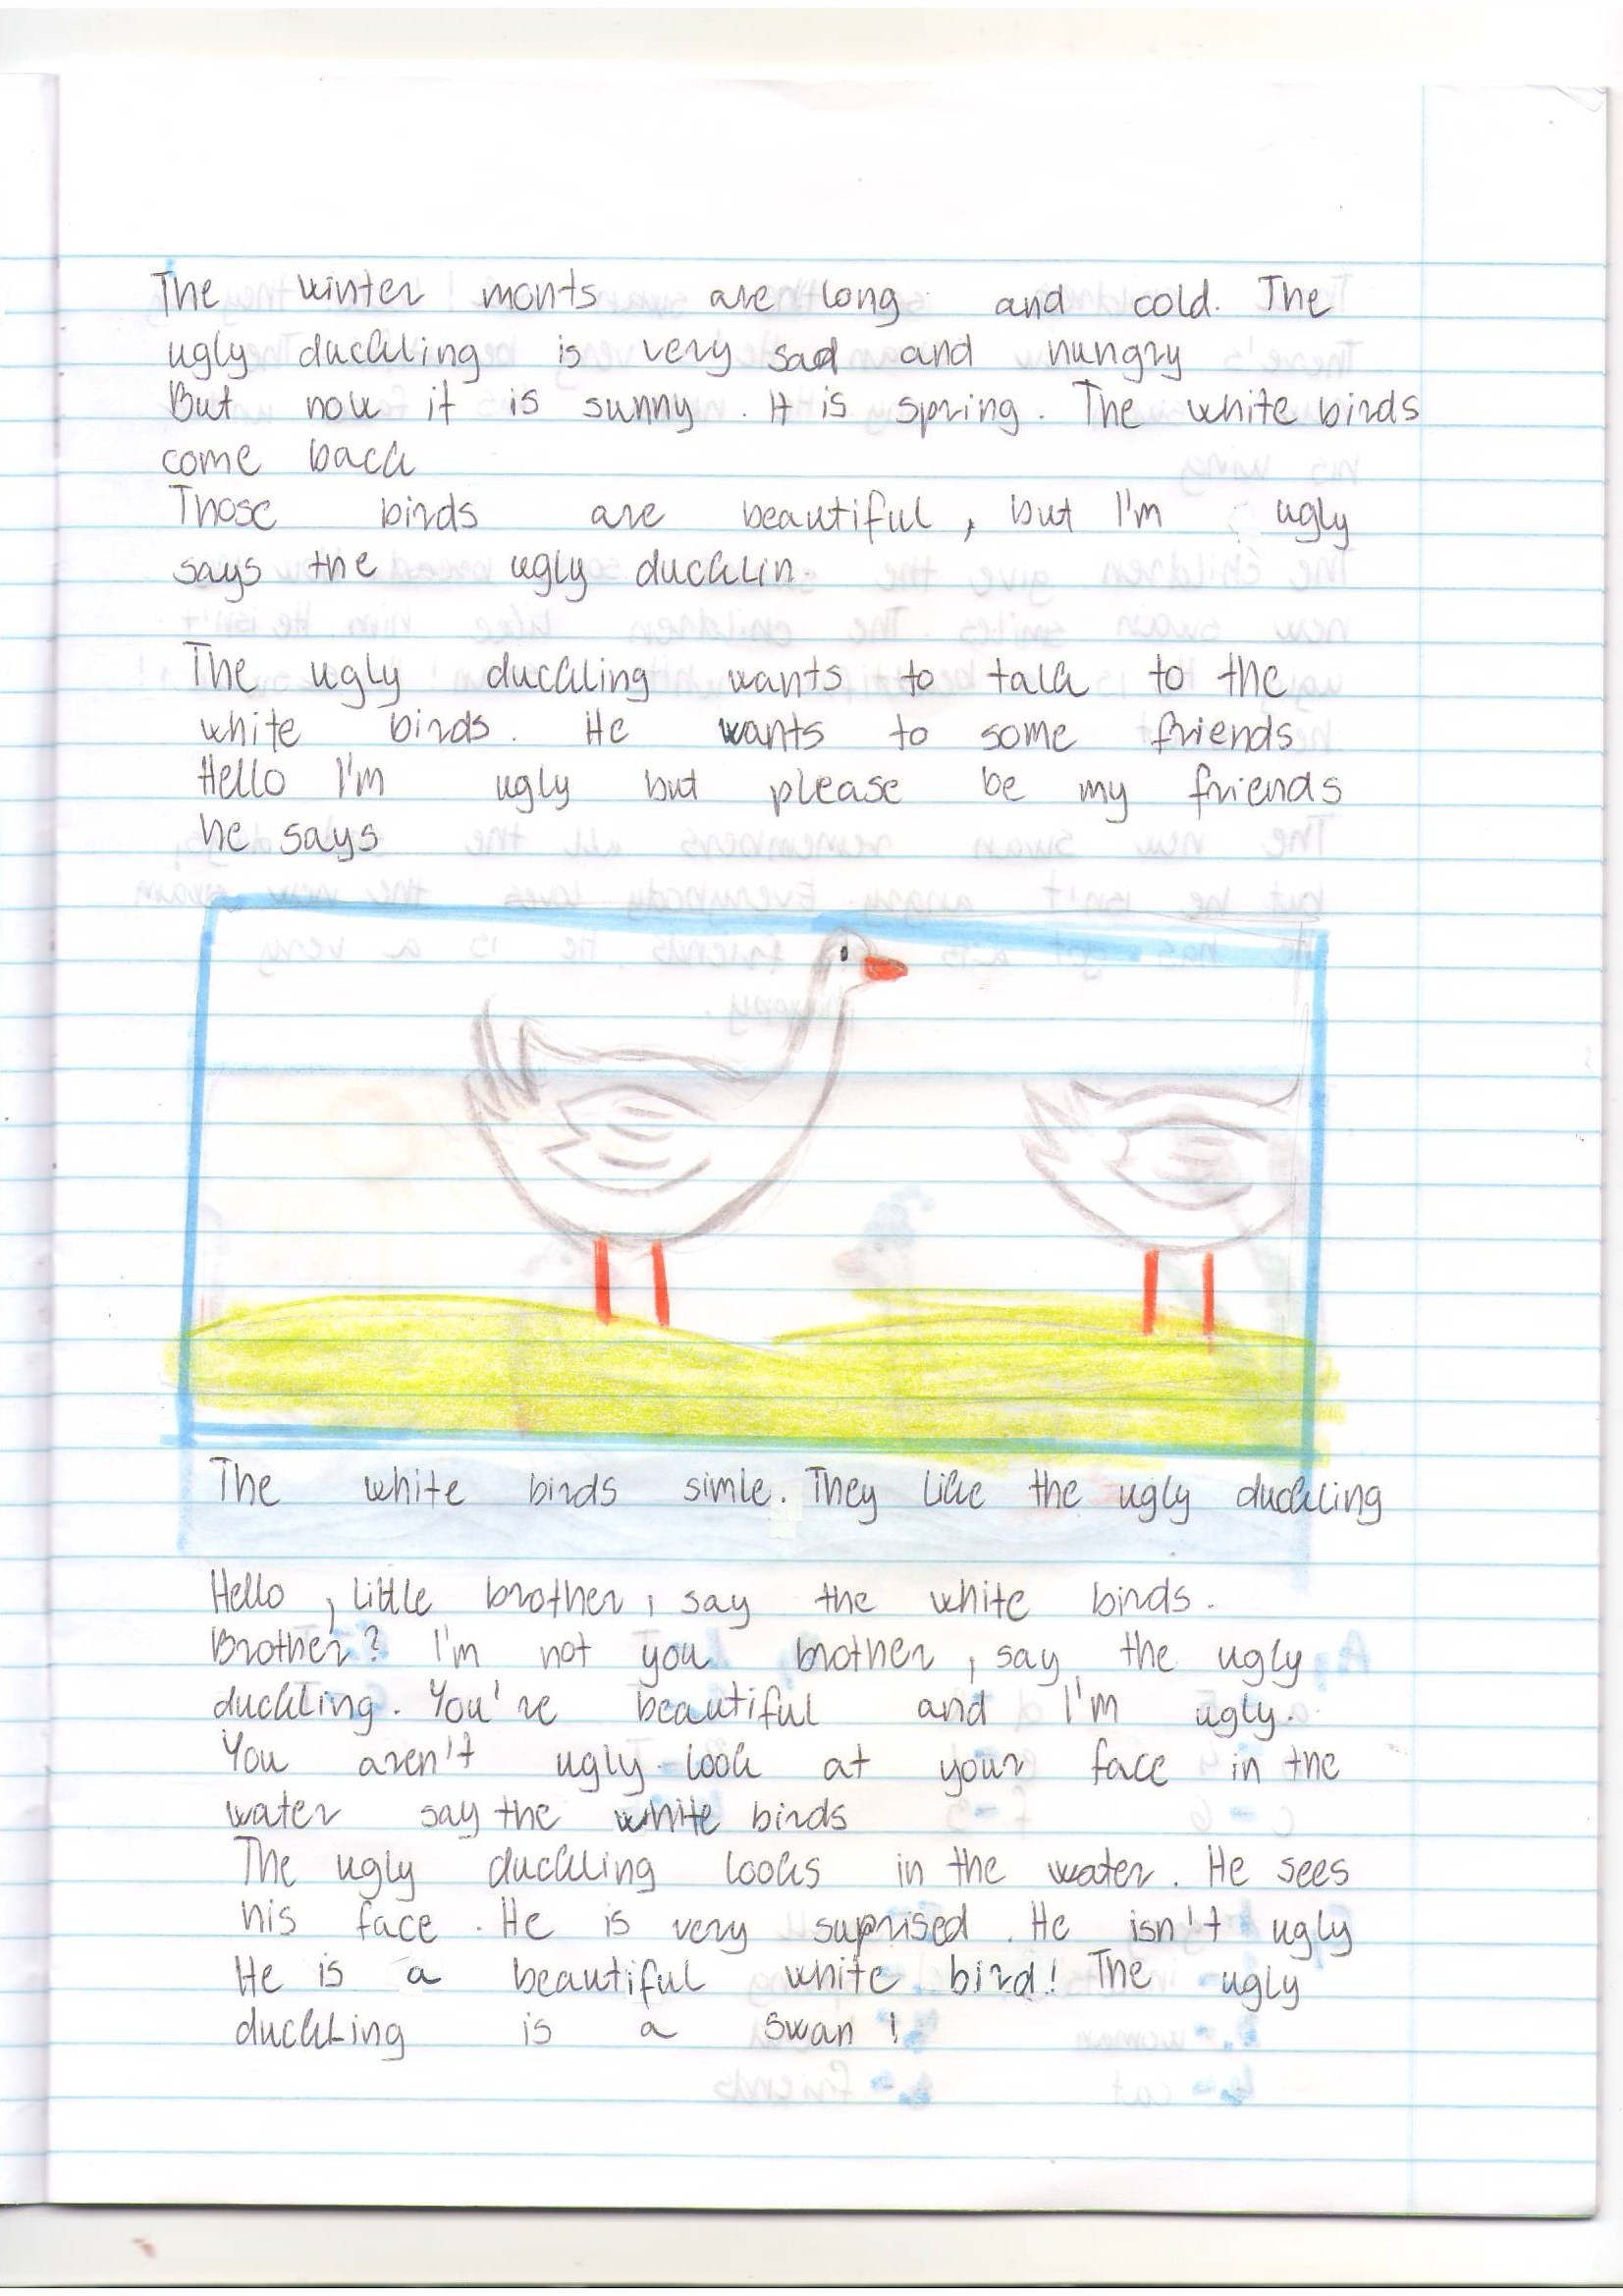 The winter monts are long and cold. The
ugly duckling is very sad and hungry
But now it is sunny. It is spring. The white birds
come back
Those birds are beautiful, but I'm ugly
says the ugly ducklin.
The ugly duckling wants to talk to the
white birds. He wants to some friends
Hello I'm ugly but please be my friends
he says
The white birds simle. They like the ugly duckling
Hello, little brother, say the white birds.
Brother? I'm not you brother, say the ugly
duckling. You're beautiful and I'm ugly.
You aren't ugly. look at your face in the
water say the white birds
The ugly duckling looks in the water. He sees
his face. He is very suprised. He isn't ugly
He is a beautiful white bird! The ugly
duckling is a swan!